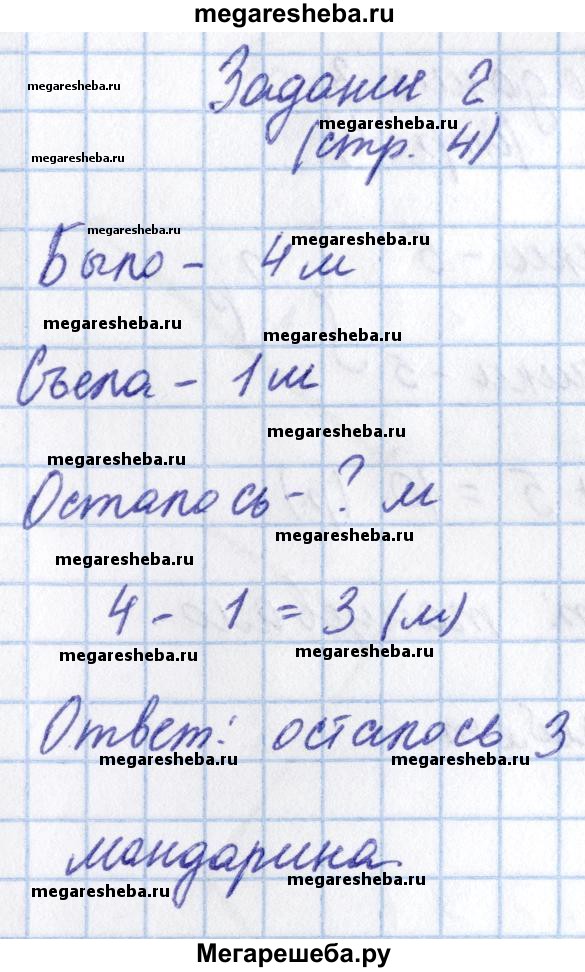 megaresheba.ru
Задание 2
megaresheba.ru
megaresheba.ru
(стр. 4)
megaresheba.ru
megaresheba.ru
megaresheba.ru
Было - 4 м
megaresheba.ru
megaresheba.ru
Съела - 1 м
megaresheba.ru
megaresheba.ru
Осталось - ? м
megaresheba.ru
megaresheba.ru
4 - 1 = 3 (м)
megaresheba.ru
megaresheba.ru
Ответ: осталось 3
megaresheba.ru
megaresheba.ru
мандарина.
megaresheba.ru
megaresheba.ru
Мегарешеба.ру